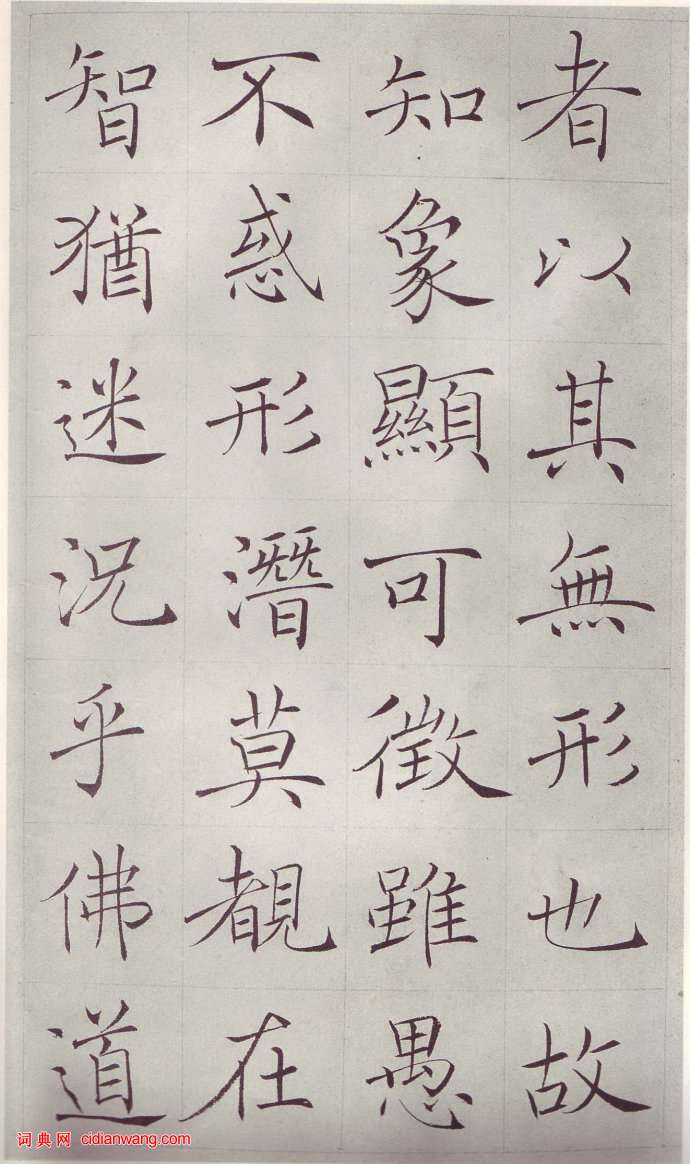 者以其無形也故
知象顯可徵雖愚
不惑形潛莫覩在
智猶迷況乎佛道
词典网 cidianwang.com